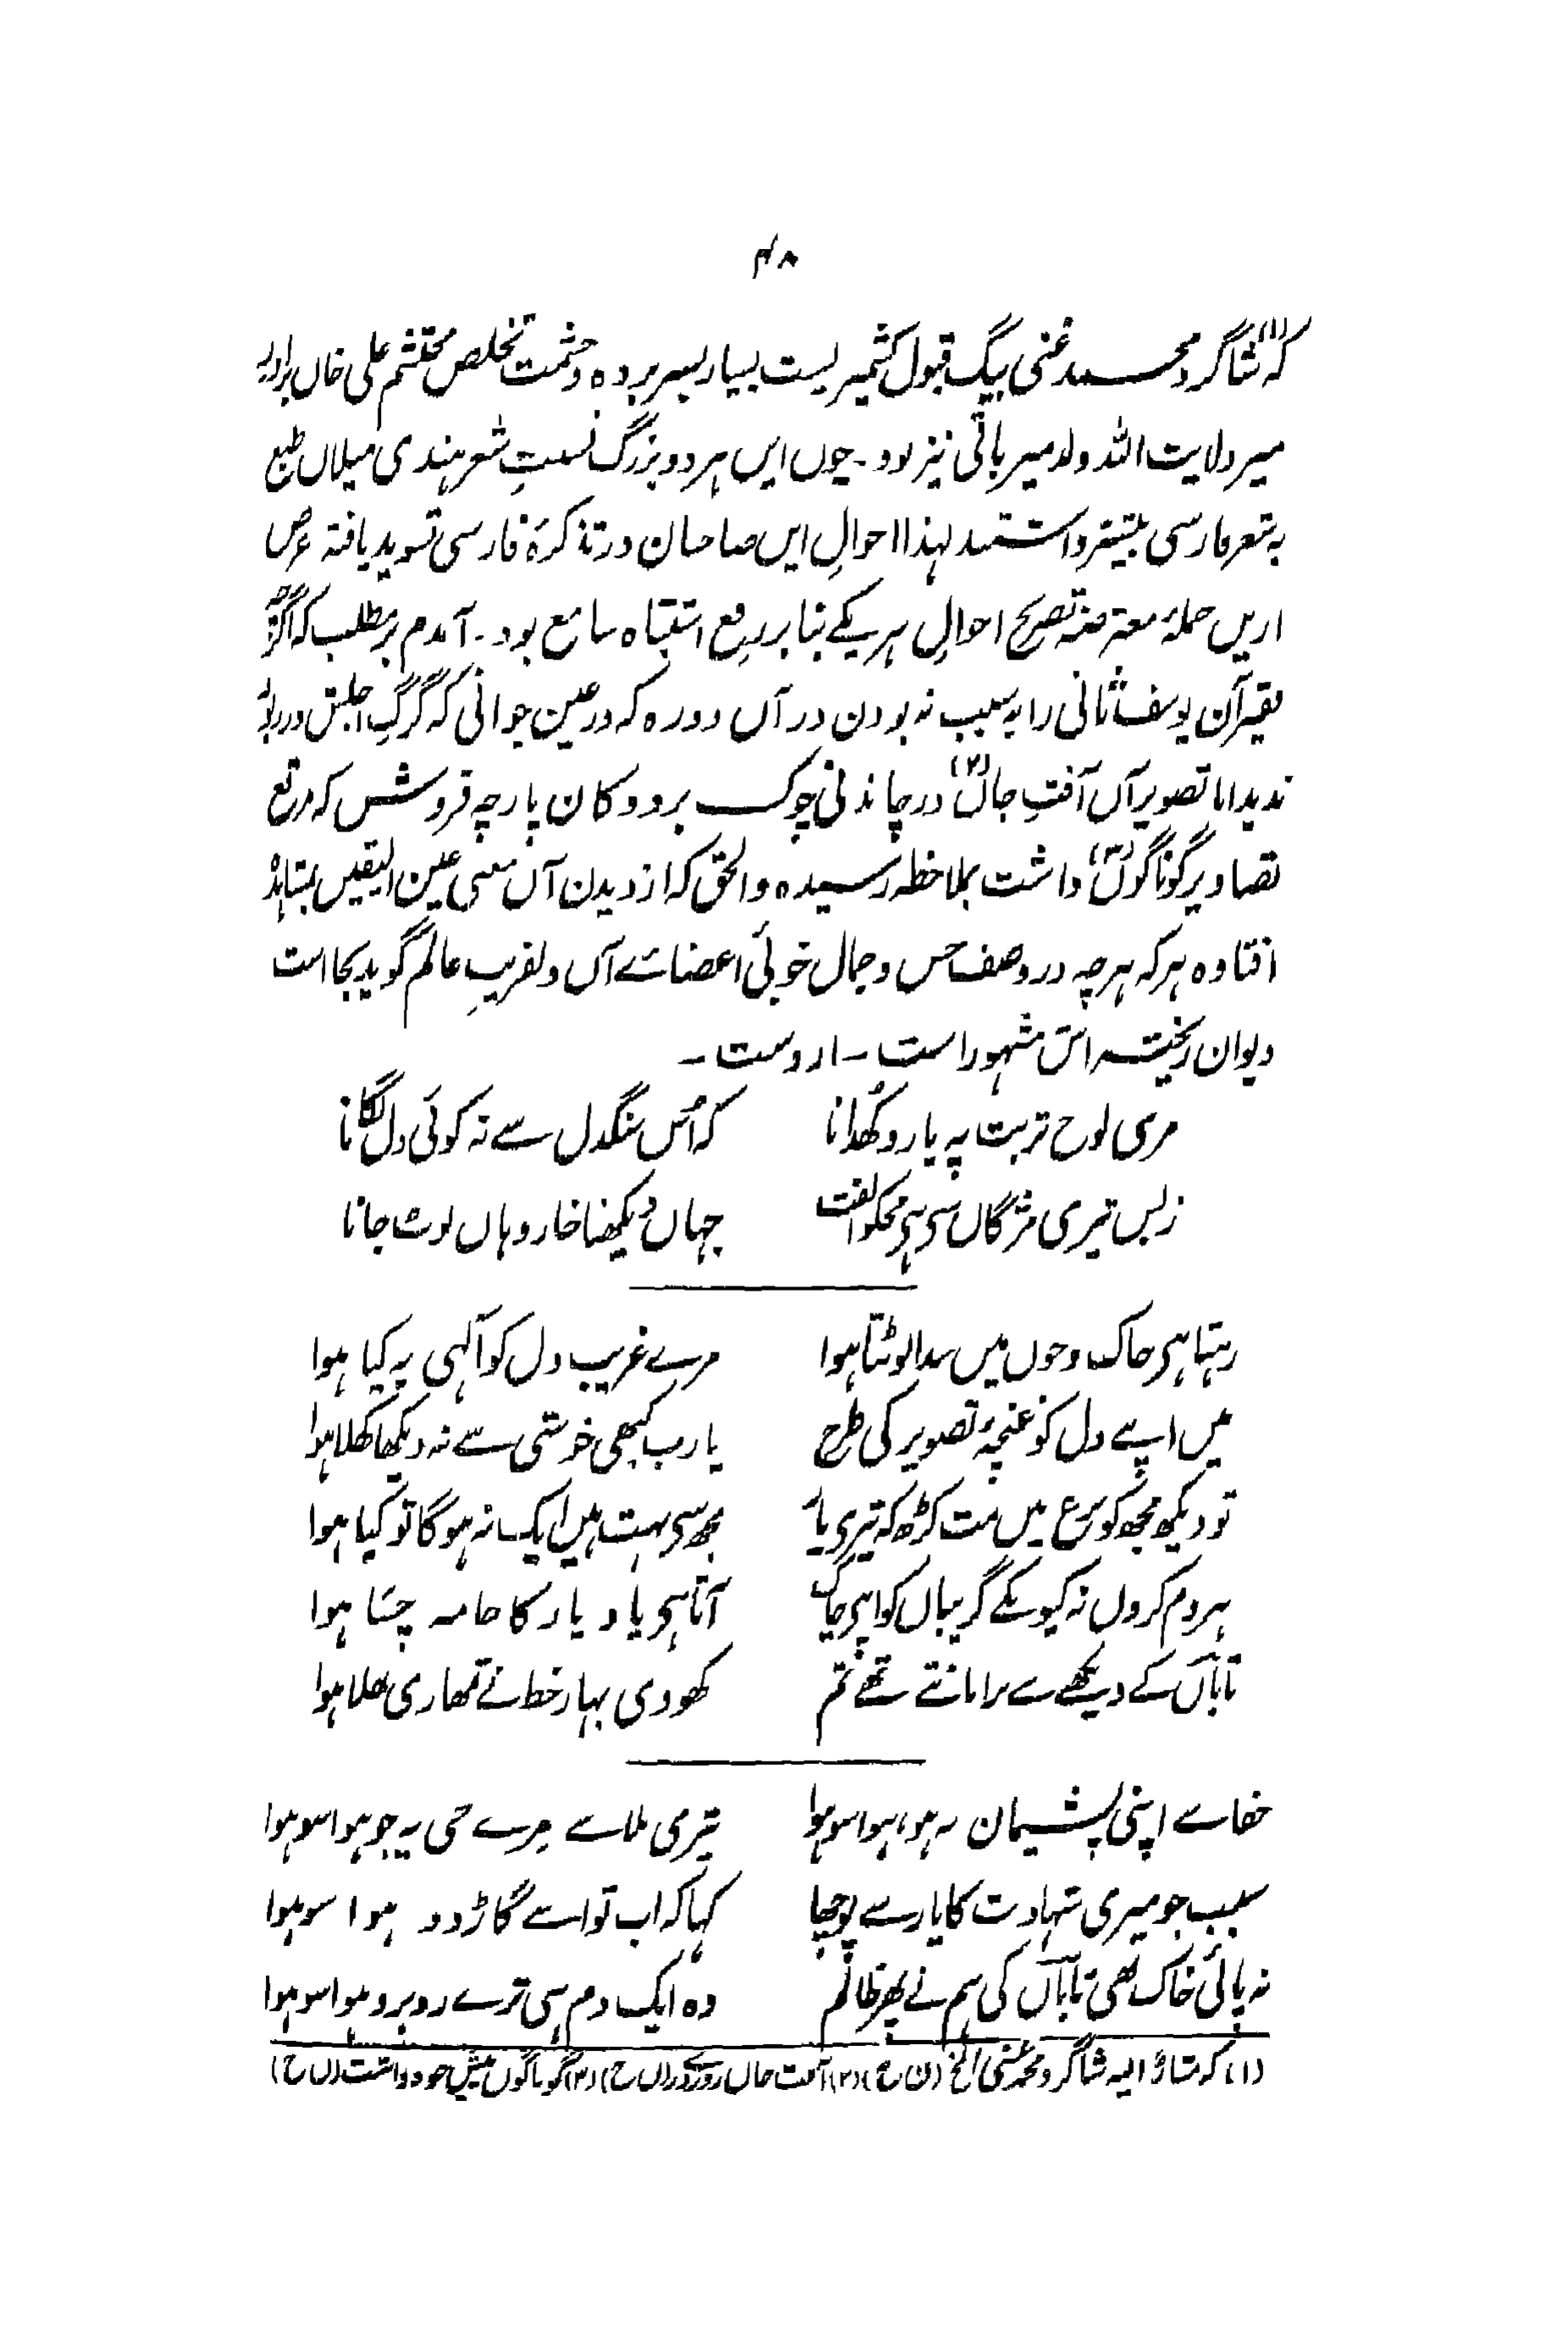 ۴۸
کہ (۱) شاگرد محمد غنی بیگ قبول کشمیریست بسیار بسر برده و حشمت تخلص محتشم علی خاں برادر
میر ولایت اللہ ولد میر باقی نیز بود۔ چوں ایں ہر دو بزرگ نسبتِ شعر ہندی میلاں طبع
بہ شعر فارسی بیشتر داشتند لہذا احوالِ ایں صاحبان در تذکرۂ فارسی تسوید یافته غرض
ازیں جملۂ معترضہ تصریح احوالِ ہر یکے بنا بر رفع اشتباہ سامع بود۔ آمدم بر مطلب کہ اگرچہ
فقیر آن یوسف ثانی را بہ سبب نہ بودن در آں دوره کہ در عین جوانی کہ گرگِ اجلش در ربود
ندید اما تصویر آں آفتِ جاں (۲) در چاندنی چوک بر دوکان پارچہ فروشش کہ مرقع
تصاویر گوناگوں (۳) داشت بملاحظہ رسیده و الحق کہ از دیدن آں معنی عین الیقیں بمشاہدہ
افتاده ہر کہ ہر چہ در وصف حسن و جمال خوبیٔ اعضائے آں دلفریبِ عالم گوید بجا است
دیوان ریختہ اش مشہور است۔ ازوست۔
مری لوح تربت پہ یارو کھُدانا کہ اُس سنگدل سے نہ کوئی دل لگانا
زبس تیری مژگاں سی ہی مجکو الفت جہاں دیکھنا خار وہاں لوٹ جانا
رہتا ہی خاک و خوں میں سدا لوٹتا ہوا مرے غریب دل کو الٰہی یہ کیا ہوا
میں اپنے دل کو غنچۂ تصویر کی طرح یارب کبھی خوشی سے نہ دیکھا کھلا ہوا
تو دیکھ مجھ کو نزع میں مت کڑھ کہ تیری یاں مجھ سی بہت ہیں ایک نہ ہوگا تو کیا ہوا
ہر دم کروں نہ کیونکے گریباں کو اپنی چاک آتا ہی یاد یار کا جامہ چسا ہوا
تاباں کے دیکھنے سے برا مانتے تھے تم کھو دی بہار خط نے تمھاری بھلا ہوا
جفا سے اپنی پشیمان نہ ہو، ہوا سو ہوا تیری بلا سے مرے جی پہ جو ہوا سو ہوا
سبب جو میری شہادت کا یار سے پوچھا کہا کہ اب تو اسے گاڑ دو ہوا سو ہوا
نہ پائی خاک بھی تاباں کی ہم نے پھر ظالم وہ ایک دم ہی ترے روبرو ہوا سو ہوا
(۱) کہ شاگرد محمد غنی الخ (ن ح) (۲) آفت جاں روزے در (ن ح) (۳) گوناگوں پیش خود داشت (ن ح)